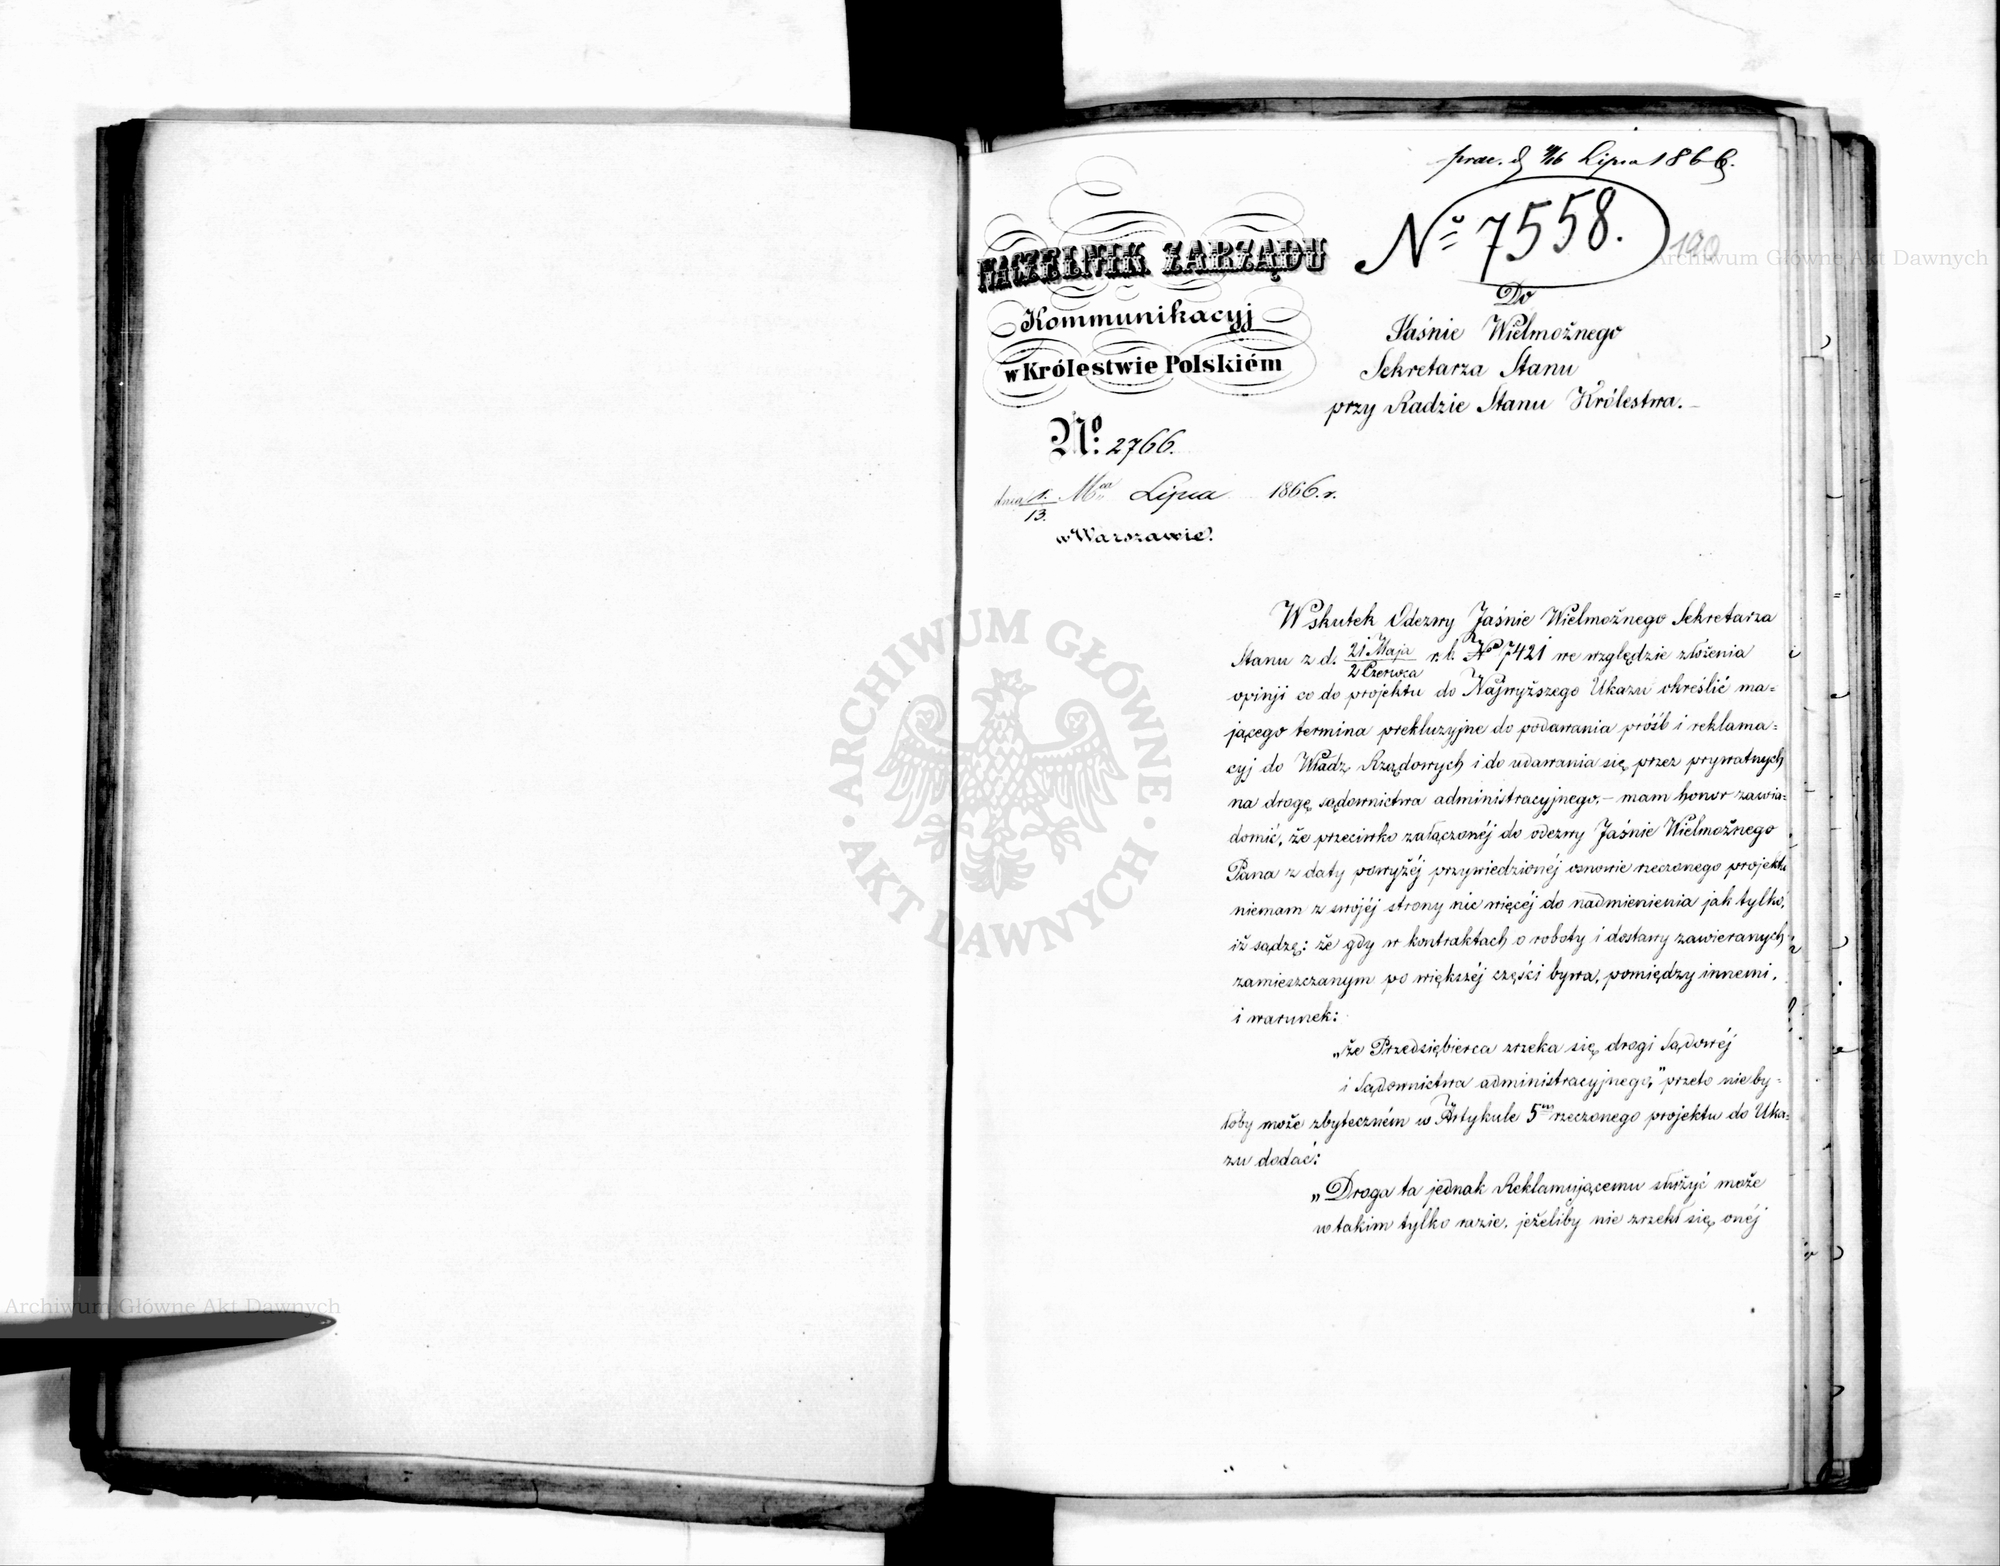 prae. d 4/16 Lipca 1866.
Nº 7558.
190
NACZELNIK ZARZĄDU
Kommunikacyj
w Królestwie Polskiém
Nº 2766.
dnia 1/13. Mca Lipca 1866. r.
w Warszawie.
Do
Jaśnie Wielmożnego
Sekretarza Stanu
przy Radzie Stanu Królestwa.-
Wskutek Odezwy Jaśnie Wielmożnego Sekretarza
Stanu z d. 21 Maja/2 Czerwca r. b. Nº 7421 we względzie złożenia
opinji co do projektu do Najwyższego Ukazu określić ma=
jącego termina prekluzyjne do podawania próśb i reklama=
cyj do Władz Rządowych i do udawania się przez prywatnych
na drogę sądownictwa administracyjnego,- mam honor zawia=
domić, że przeciwko załączonéj do odezwy Jaśnie Wielmożnego
Pana z daty powyżéj przywiedzionéj osnowie rzeczonego projektu
niemam z swojéj strony nic więcéj do nadmienienia jak tylko,
iż sądzę: że gdy w kontraktach o roboty i dostawy zawieranych
zamieszczanym po większéj części bywa, pomiędzy innemi,
i warunek:
„że Przedsiębierca zrzeka się drogi Sądowéj
i Sądownictwa administracyjnego," przeto nieby=
łoby może zbyteczném w Artykule 5m rzeczonego projektu do Uka=
zu dodać:
„Droga ta jednak Reklamującemu służyć może
w takim tylko razie, jeżeliby nie zrzekł się onéj
Archiwum Główne Akt Dawnych
Archiwum Główne Akt Dawnych
ARCHIWUM GŁÓWNE
AKT DAWNYCH